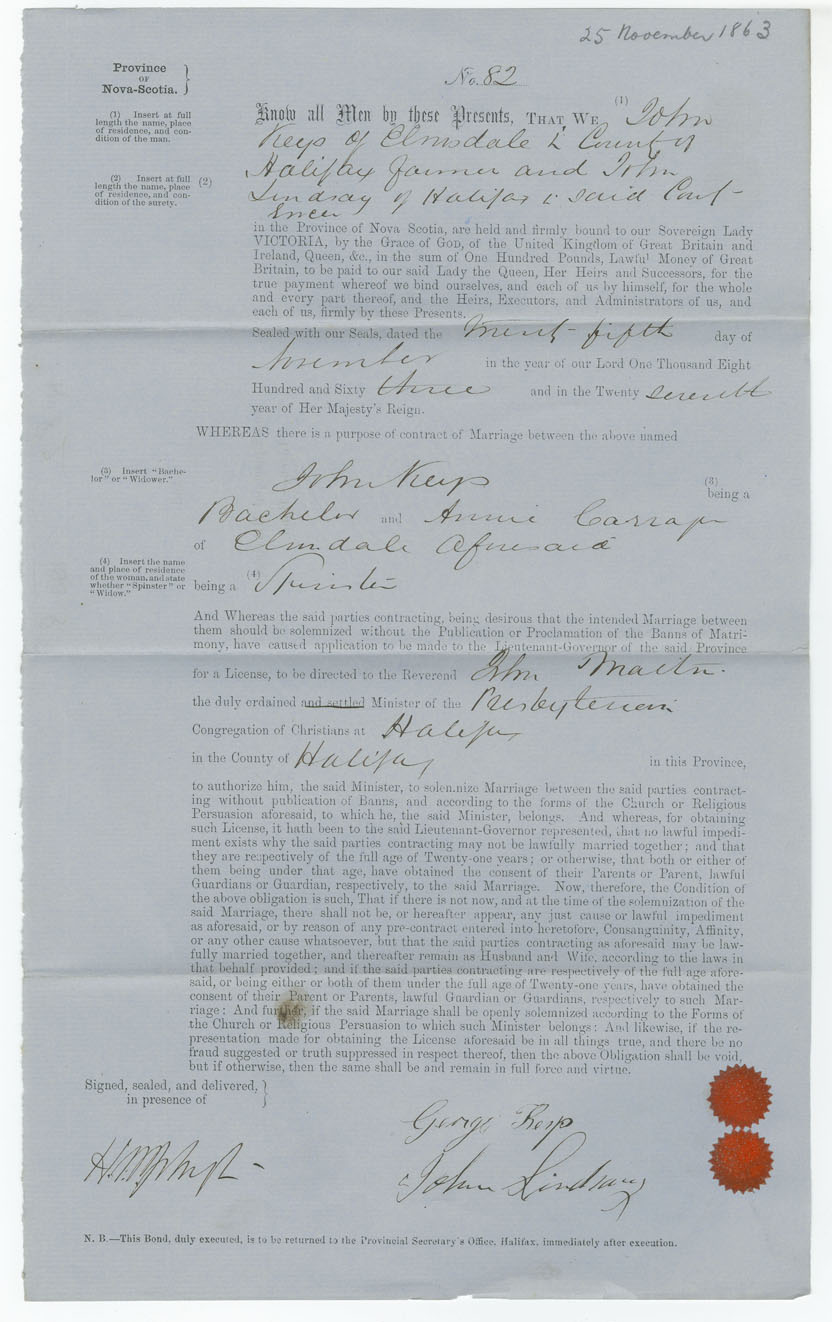 25 November 1863
Province
OF
Nova-Scotia.
No. 82
(1) Insert at full
length the name, place
of residence, and con-
dition of the man.
Know all Men by these Presents, THAT WE (1) John
Keys of Elmsdale County of
(2) Insert at full
length the name, place
of residence, and con-
dition of the surety.
(2) Halifax farmer and John
Lindsay of Halifax said
in the Province of Nova Scotia, are held and firmly bound to our Sovereign Lady
VICTORIA, by the Grace of GOD, of the United Kingdom of Great Britain and
Ireland, Queen, &c., in the sum of One Hundred Pounds, Lawful Money of Great
Britain, to be paid to our said Lady the Queen, Her Heirs and Successors, for the
true payment whereof we bind ourselves, and each of us by himself, for the whole
and every part thereof, and the Heirs, Executors, and Administrators of us, and
each of us, firmly by these Presents.
Sealed with our Seals, dated the Twenty fifth day of
November in the year of our Lord One Thousand Eight
Hundred and Sixty three and in the Twenty seventh
year of Her Majesty's Reign.
WHEREAS there is a purpose of contract of Marriage between the above named
(3) Insert "Bache-
lor" or "Widower."
John Keys (3)
being a
Bachelor and Annie
of Elmsdale aforesaid
(4) Insert the name
and place of residence
of the woman, and state
whether "Spinster" or
"Widow."
being a (4) Spinster
And Whereas the said parties contracting, being desirous that the intended Marriage between
them should be solemnized without the Publication or Proclamation of the Banns of Matri-
mony, have caused application to be made to the Lieutenant-Governor of the said Province
for a License, to be directed to the Reverend John Martin
the duly ordained and settled Minister of the Presbyterian
Congregation of Christians at Halifax
in the County of Halifax in this Province,
to authorize him, the said Minister, to solemnize Marriage between the said parties contract-
ing without publication of Banns, and according to the forms of the Church or Religious
Persuasion aforesaid, to which he, the said Minister, belongs. And whereas, for obtaining
such License, it hath been to the said Lieutenant-Governor represented, that no lawful impedi-
ment exists why the said parties contracting may not be lawfully married together; and that
they are respectively of the full age of Twenty-one years; or otherwise, that both or either of
them being under that age, have obtained the consent of their Parents or Parent, lawful
Guardians or Guardian, respectively, to the said Marriage. Now, therefore, the Condition of
the above obligation is such, That if there is not now, and at the time of the solemnization of the
said Marriage, there shall not be, or hereafter appear, any just cause or lawful impediment
as aforesaid, or by reason of any pre-contract entered into heretofore, Consanguinity, Affinity,
or any other cause whatsoever, but that the said parties contracting as aforesaid may be law-
fully married together, and thereafter remain as Husband and Wife, according to the laws in
that behalf provided; and if the said parties contracting are respectively of the full age afore-
said, or being either or both of them under the full age of Twenty-one years, have obtained the
consent of their Parent or Parents, lawful Guardian or Guardians, respectively to such Mar-
riage: And further, if the said Marriage shall be openly solemnized according to the Forms of
the Church or Religious Persuasion to which such Minister belongs: And likewise, if the re-
presentation made for obtaining the License aforesaid be in all things true, and there be no
fraud suggested or truth suppressed in respect thereof, then the above Obligation shall be void,
but if otherwise, then the same shall be and remain in full force and virtue.
Signed, sealed, and delivered,
in presence of
George
John Lindsay
N. B.—This Bond, duly executed, is to be returned to the Provincial Secretary's Office, Halifax, immediately after execution.